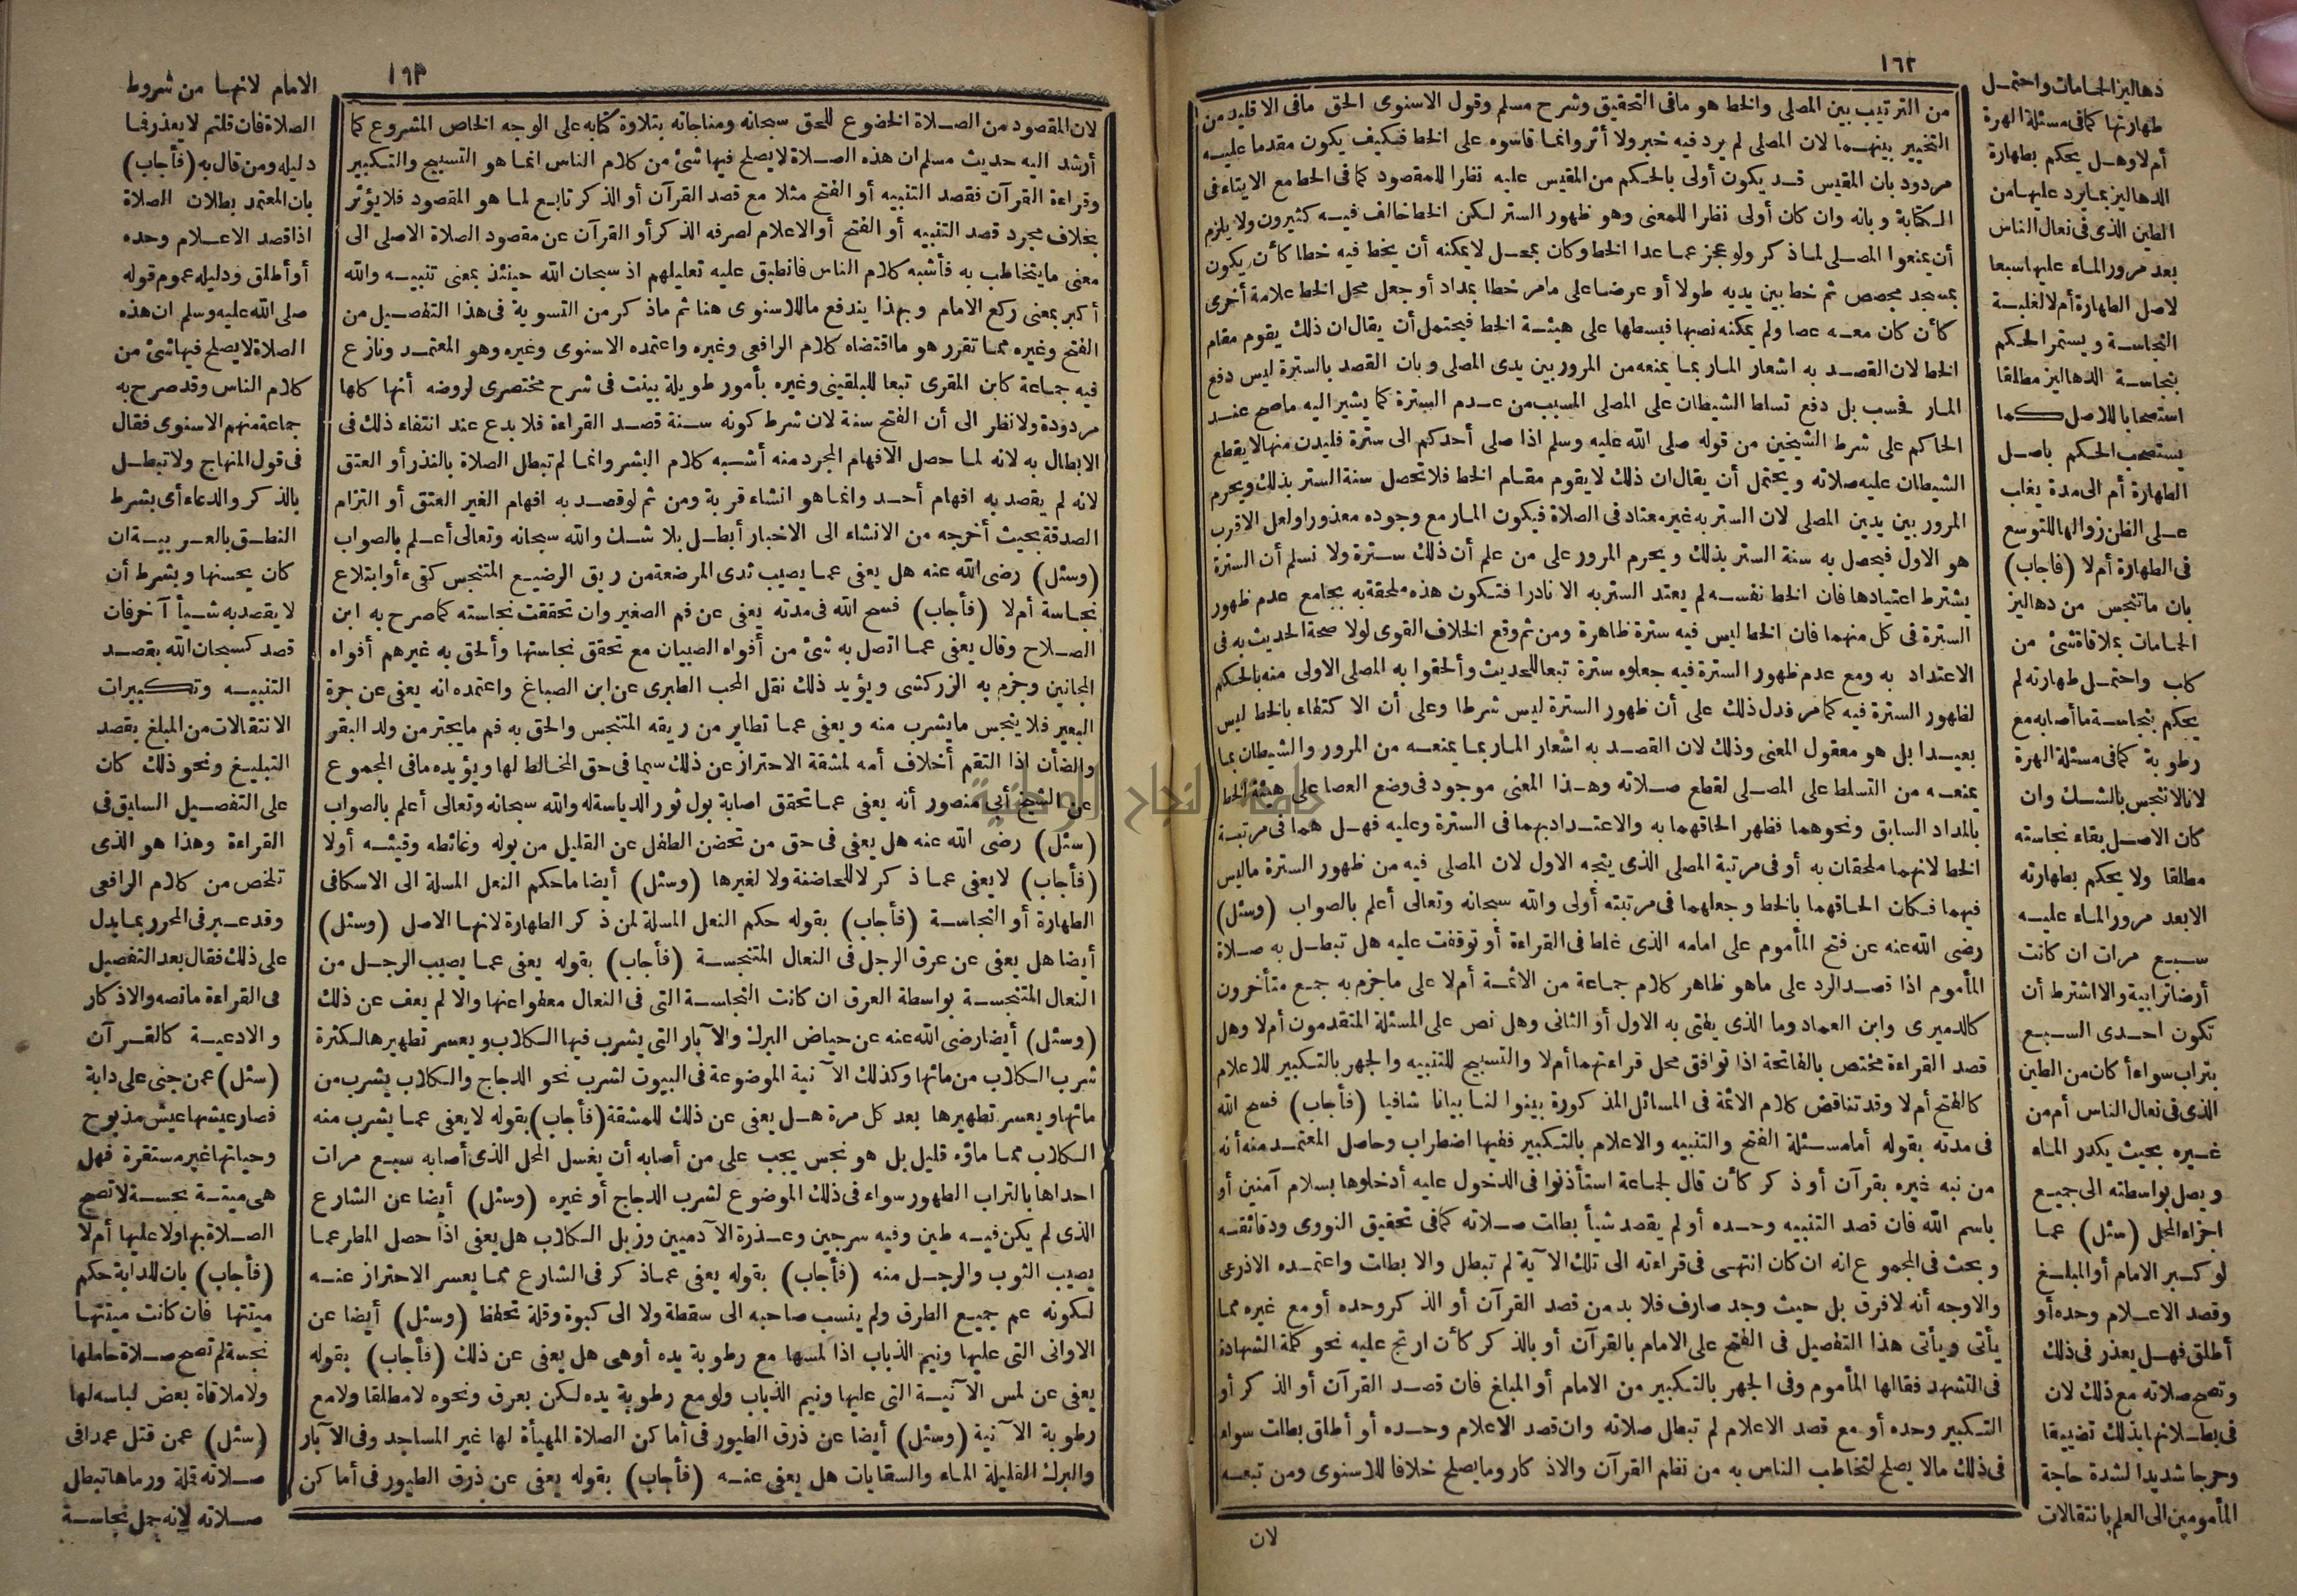 ١٦٢
من الترتيب بين المصلى والخط هو مافى التحقيق وشرح مسلم وقول الاسنوى الحق مافى الاقليد من
التخيير بينهما لان المصلى لم يرد فيه خبر ولا أثر وانما قاسوه على الخط فكيف يكون مقدما عليه
مردود بان المقيس قد يكون أولى بالحكم من المقيس عليه نظرا للمقصود كما فى الخط مع الايتاء فى
الكتابة وبانه وان كان أولى نظرا للمعنى وهو ظهور الستر لكن الخط خالف فيه كثيرون ولا يلزم
أن يمنعوا المصلى لما ذكر ولو عجز عما عدا الخط وكان بمحل لا يمكنه أن يخط فيه خطا كأن يكون
بمسجد مجصص ثم خط بين يديه طولا أو عرضا على مامر خطا بمداد أو جعل محل الخط علامة أخرى
كأن كان معه عصا ولم يمكنه نصبها فبسطها على هيئة الخط فيحتمل أن يقال ان ذلك يقوم مقام
الخط لان القصد به اشعار المار بما يمنعه من المرور بين يدى المصلى وبان القصد بالسترة ليس دفع
المار فحسب بل دفع تسلط الشيطان على المصلى المسبب من عدم السترة كما يشير اليه ماصح عند
الحاكم على شرط الشيخين من قوله صلى الله عليه وسلم اذا صلى أحدكم الى سترة فليدن منها لا يقطع
الشيطان عليه صلاته ويحتمل أن يقال ان ذلك لا يقوم مقام الخط فلا تحصل سنة الستر بذلك ويحرم
المرور بين يدين المصلى لان الستر به غير معتاد فى الصلاة فيكون المار مع وجوده معذورا ولعل الاقرب
هو الاول فيحصل به سنة الستر بذلك ويحرم المرور على من علم أن ذلك سترة ولا نسلم أن السترة
يشترط اعتيادها فان الخط نفسه لم يعتد الستر به الا نادرا فتكون هذه ملحقة به بجامع عدم ظهور
السترة فى كل منهما فان الخط ليس فيه سترة ظاهرة ومن ثم وقع الخلاف القوى لولا صحة الحديث به فى
الاعتداد به ومع عدم ظهور السترة فيه جعلوه سترة تبعا للحديث وألحقوا به المصلى الاولى منه بالحكم
لظهور السترة فيه كما مر فدل ذلك على أن ظهور السترة ليس شرطا وعلى أن الاكتفاء بالخط ليس
بعيدا بل هو معقول المعنى وذلك لان القصد به اشعار المار بما يمنعه من المرور والشيطان بما
يمنعه من التسلط على المصلى لقطع صلاته وهذا المعنى موجود فى وضع العصا على هيئة الخط
بالمداد السابق ونحوهما فظهر الحاقهما به والاعتداد بهما فى السترة وعليه فهل هما فى مرتبة
الخط لانهما ملحقان به أو فى مرتبة المصلى الذى يتجه الاول لان المصلى فيه من ظهور السترة ماليس
فيهما فكان الحاقهما بالخط وجعلهما فى مرتبته أولى والله سبحانه وتعالى أعلم بالصواب (وسئل)
رضى الله عنه عن فتح المأموم على امامه الذى غلط فى القراءة أو توقفت عليه هل تبطل به صلاة
المأموم اذا قصد الرد على ماهو ظاهر كلام جماعة من الائمة أم لا على ماجزم به جمع متأخرون
كالدميرى وابن العماد وما الذى يفتى به الاول أو الثانى وهل نص على المسئلة المتقدمون أم لا وهل
قصد القراءة مختص بالفاتحة اذا توافق محل قراءتهما أم لا والتسبيح للتنبيه والجهر بالتكبير للاعلام
كالفتح أم لا وقد تناقض كلام الائمة فى المسائل المذكورة بينوا لنا بيانا شافيا (فأجاب) فسح الله
فى مدته بقوله أما مسئلة الفتح والتنبيه والاعلام بالتكبير ففيها اضطراب وحاصل المعتمد منه أنه
من نبه غيره بقرآن أو ذكر كأن قال لجماعة استأذنوا فى الدخول عليه أدخلوها بسلام آمنين أو
باسم الله فان قصد التنبيه وحده أو لم يقصد شيأ بطلت صلاته كما فى تحقيق النووى ودقائقه
وبحث فى المجموع انه ان كان انتهى فى قراءته الى تلك الآية لم تبطل والا بطلت واعتمده الاذرعى
والاوجه أنه لا فرق بل حيث وجد صارف فلا بد من قصد القرآن أو الذكر وحده أو مع غيره مما
يأتى ويأتى هذا التفصيل فى الفتح على الامام بالقرآن أو بالذكر كأن ارتج عليه نحو كلمة الشهادة
فى التشهد فقالها المأموم وفى الجهر بالتكبير من الامام أو المبلغ فان قصد القرآن أو الذكر أو
التكبير وحده أو مع قصد الاعلام لم تبطل صلاته وان قصد الاعلام وحده أو أطلق بطلت سواء
فى ذلك مالا يصلح لتخاطب الناس به من نظم القرآن والاذكار وما يصلح خلافا للاسنوى ومن تبعه
لان
دهاليز الحمامات واحتمل
طهارتها كما فى مسئلة الهرة
أم لا وهل يحكم بطهارة
الدهاليز بما يرد عليها من
الطين الذى فى نعال الناس
بعد مرور الماء عليها سبعا
لاصل الطهارة أم لا لغلبة
النجاسة ويستمر الحكم
بنجاسة الدهاليز مطلقا
استصحابا للاصل كما
يستصحب الحكم باصل
الطهارة أم الى مدة يغلب
على الظن زوالها للتوسع
فى الطهارة أم لا (فاجاب)
بان ماتنجس من دهاليز
الحمامات بملاقاة شئ من
كلب واحتمل طهارته لم
يحكم بنجاسة ما أصابه مع
رطوبة كما فى مسئلة الهرة
لانا لا ننجس بالشك وان
كان الاصل بقاء نجاسته
مطلقا ولا يحكم بطهارته
الا بعد مرور الماء عليه
سبع مرات ان كانت
أرضا ترابية والا اشترط أن
تكون احدى السبع
بتراب سواء أكان من الطين
الذى فى نعال الناس أم من
غيره بحيث يكدر الماء
ويصل بواسطته الى جميع
اجزاء المحل (سئل) عما
لو كبر الامام أو المبلغ
وقصد الاعلام وحده أو
أطلق فهل يعذر فى ذلك
وتصح صلاته مع ذلك لان
فى بطلانها بذلك تضييقا
وحرجا شديدا لشدة حاجة
المأمومين الى العلم بانتقالات
١٦٣
لان المقصود من الصلاة الخضوع للحق سبحانه ومناجاته بتلاوة كتابه على الوجه الخاص المشروع كما
أرشد اليه حديث مسلم ان هذه الصلاة لا يصلح فيها شئ من كلام الناس انما هو التسبيح والتكبير
وقراءة القرآن فقصد التنبيه أو الفتح مثلا مع قصد القرآن أو الذكر تابع لما هو المقصود فلا يؤثر
بخلاف مجرد قصد التنبيه أو الفتح أو الاعلام لصرفه الذكر أو القرآن عن مقصود الصلاة الاصلى الى
معنى ما يتخاطب به فأشبه كلام الناس فانطبق عليه تعليلهم اذ سبحان الله حينئذ بمعنى تنبيه والله
أكبر بمعنى ركع الامام وبهذا يندفع ما للاسنوى هنا ثم ماذكر من التسوية فى هذا التفصيل من
الفتح وغيره مما تقرر هو ما اقتضاه كلام الرافعى وغيره واعتمده الاسنوى وغيره وهو المعتمد ونازع
فيه جماعة كابن المقرى تبعا للبلقينى وغيره بأمور طويلة بينت فى شرح مختصرى لروضه أنها كلها
مردودة ولا نظر الى أن الفتح سنة لان شرط كونه سنة قصد القراءة فلا بدع عند انتفاء ذلك فى
الابطال به لانه لما حصل الافهام المجرد منه أشبه كلام البشر وانما لم تبطل الصلاة بالنذر أو العتق
لانه لم يقصد به افهام أحد وانما هو انشاء قربة ومن ثم لو قصد به افهام الغير العتق أو التزام
الصدقة بحيث أخرجه من الانشاء الى الاخبار أبطل بلا شك والله سبحانه وتعالى أعلم بالصواب
(وسئل) رضى الله عنه هل يعفى عما يصيب ثدى المرضعة من ريق الرضيع المتنجس كقىء أو ابتلاع
نجاسة أم لا (فأجاب) فسح الله فى مدته يعفى عن فم الصغير وان تحققت نجاسته كما صرح به ابن
الصلاح وقال يعفى عما اتصل به شئ من أفواه الصبيان مع تحقق نجاستها وألحق به غيرهم أفواه
المجانين وجزم به الزركشى ويؤيد ذلك نقل المحب الطبرى عن ابن الصباغ واعتمده انه يعفى عن جرة
البعير فلا ينجس ما يشرب منه ويعفى عما تطاير من ريقه المتنجس والحق به فم ما يجتر من ولد البقر
والضأن اذا التقم أخلاف أمه لمشقة الاحتراز عن ذلك سيما فى حق المخالط لها ويؤيده مافى المجموع
عن الشيخ أبى منصور أنه يعفى عما تحقق اصابة بول ثور الدياسة له والله سبحانه وتعالى أعلم بالصواب
(سئل) رضى الله عنه هل يعفى فى حق من تحضن الطفل عن القليل من بوله وغائطه وقيئه أو لا
(فأجاب) لا يعفى عما ذكر لا للحاضنة ولا لغيرها (وسئل) أيضا ماحكم النعل المسلة الى الاسكافى
الطهارة أو النجاسة (فأجاب) بقوله حكم النعل المسلة لمن ذكر الطهارة لانها الاصل (وسئل)
أيضا هل يعفى عن عرق الرجل فى النعال المتنجسة (فأجاب) بقوله يعفى عما يصيب الرجل من
النعال المتنجسة بواسطة العرق ان كانت النجاسة التى فى النعال معفوا عنها والا لم يعف عن ذلك
(وسئل) أيضا رضى الله عنه عن حياض البرك والآبار التى يشرب فيها الكلاب ويعسر تطهيرها لكثرة
شرب الكلاب من مائها وكذلك الآنية الموضوعة فى البيوت لشرب نحو الدجاج والكلاب يشرب من
مائها ويعسر تطهيرها بعد كل مرة هل يعفى عن ذلك للمشقة (فأجاب) بقوله لا يعفى عما يشرب منه
الكلاب مما ماؤه قليل بل هو نجس يجب على من أصابه أن يغسل المحل الذى أصابه سبع مرات
احداها بالتراب الطهور سواء فى ذلك الموضوع لشرب الدجاج أو غيره (وسئل) أيضا عن الشارع
الذى لم يكن فيه طين وفيه سرجين وعذرة الآدميين وزبل الكلاب هل يعفى اذا حصل المطر عما
يصيب الثوب والرجل منه (فأجاب) بقوله يعفى عما ذكر فى الشارع مما يعسر الاحتراز عنه
لكونه عم جميع الطرق ولم ينسب صاحبه الى سقطة ولا الى كبوة وقلة تحفظ (وسئل) أيضا عن
الاوانى التى عليها ونيم الذباب اذا لمسها مع رطوبة يده أو هى هل يعفى عن ذلك (فأجاب) بقوله
يعفى عن لمس الآنية التى عليها ونيم الذباب ولو مع رطوبة يده لكن بعرق ونحوه لا مطلقا ولا مع
رطوبة الآنية (وسئل) أيضا عن ذرق الطيور فى أماكن الصلاة المهيأة لها غير المساجد وفى الآبار
والبرك القليلة الماء والسقايات هل يعفى عنه (فأجاب) بقوله يعفى عن ذرق الطيور فى أماكن
الامام لانها من شروط
الصلاة فان قلتم لا يعذر فما
دليله ومن قال به (فأجاب)
بان المعتمد بطلان الصلاة
اذا قصد الاعلام وحده
أو أطلق ودليله عموم قوله
صلى الله عليه وسلم ان هذه
الصلاة لا يصلح فيها شئ من
كلام الناس وقد صرح به
جماعة منهم الاسنوى فقال
فى قول المنهاج ولا تبطل
بالذكر والدعاء أى بشرط
النطق بالعربية ان
كان يحسنها وبشرط أن
لا يقصد به شيأ آخر فان
قصد كسبحان الله بقصد
التنبيه وتكبيرات
الانتقالات من المبلغ بقصد
التبليغ ونحو ذلك كان
على التفصيل السابق فى
القراءة وهذا هو الذى
تلخص من كلام الرافعى
وقد عبر فى المحرر بما يدل
على ذلك فقال بعد التفصيل
فى القراءة مانصه والاذكار
والادعية كالقرآن
(سئل) عمن جنى على دابة
فصار عيشها عيش مذبوح
وحياتها غير مستقرة فهل
هى ميتة نجسة لا تصح
الصلاة بها ولا عليها أم لا
(فأجاب) بان للدابة حكم
ميتتها فان كانت ميتتها
نجسة لم تصح صلاة حاملها
ولا ملاقاة بعض لباسه لها
(سئل) عمن قتل عمدا فى
صلاته قملة ورماها تبطل
صلاته لانه حمل نجاسة
جامعة النجاح الوطنية